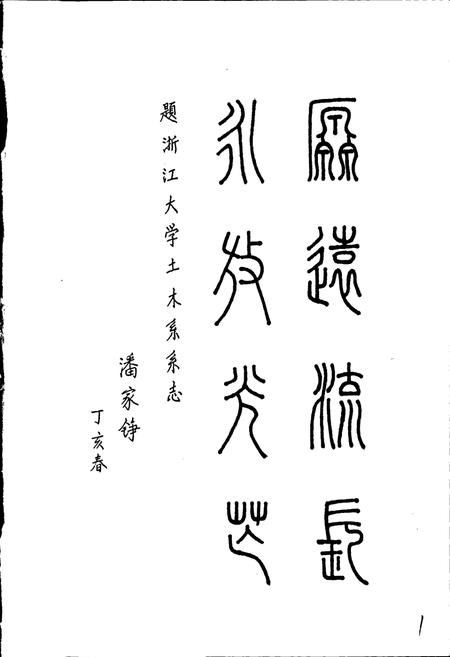 源遠流長
永放光芒
题浙江大学土木系系志
潘家铮
丁亥春
1